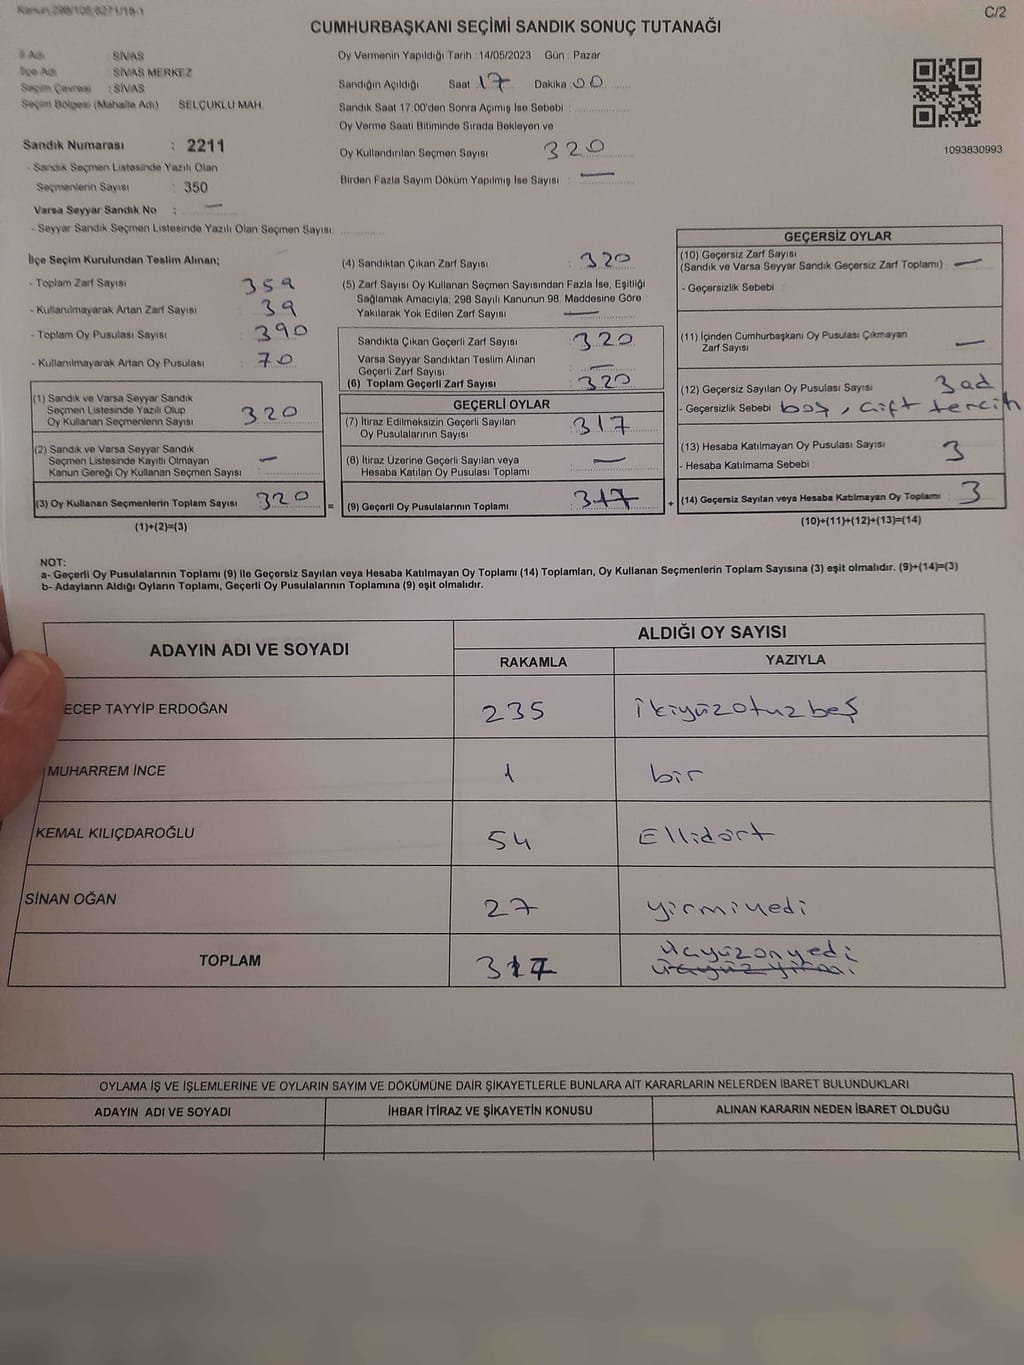 Kanun:298/105,6271/18-1
C/2
CUMHURBAŞKANI SEÇİMİ SANDIK SONUÇ TUTANAĞI
İl Adı : SİVAS
İlçe Adı : SİVAS MERKEZ
Seçim Çevresi : SİVAS
Seçim Bölgesi (Mahalle Adı) SELÇUKLU MAH.
Sandık Numarası : 2211
- Sandık Seçmen Listesinde Yazılı Olan
Seçmenlerin Sayısı : 350
Varsa Seyyar Sandık No : —
- Seyyar Sandık Seçmen Listesinde Yazılı Olan Seçmen Sayısı:
Oy Vermenin Yapıldığı Tarih : 14/05/2023 Gün : Pazar
Sandığın Açıldığı Saat 17 Dakika 00
Sandık Saat 17:00'den Sonra Açımış İse Sebebi :
Oy Verme Saati Bitiminde Sırada Bekleyen ve
Oy Kullandırılan Seçmen Sayısı 320
Birden Fazla Sayım Döküm Yapılmış İse Sayısı : —
1093830993
İlçe Seçim Kurulundan Teslim Alınan;
- Toplam Zarf Sayısı 359
- Kullanılmayarak Artan Zarf Sayısı 39
- Toplam Oy Pusulası Sayısı 390
- Kullanılmayarak Artan Oy Pusulası 70
(1) Sandık ve Varsa Seyyar Sandık
Seçmen Listesinde Yazılı Olup
Oy Kullanan Seçmenlerin Sayısı 320
(2) Sandık ve Varsa Seyyar Sandık
Seçmen Listesinde Kayıtlı Olmayan
Kanun Gereği Oy Kullanan Seçmen Sayısı —
(3) Oy Kullanan Seçmenlerin Toplam Sayısı 320 =
(1)+(2)=(3)
(4) Sandıktan Çıkan Zarf Sayısı : 320
(5) Zarf Sayısı Oy Kullanan Seçmen Sayısından Fazla İse, Eşitliği
Sağlamak Amacıyla; 298 Sayılı Kanunun 98. Maddesine Göre
Yakılarak Yok Edilen Zarf Sayısı : —
Sandıkta Çıkan Geçerli Zarf Sayısı : 320
Varsa Seyyar Sandıktan Teslim Alınan
Geçerli Zarf Sayısı : —
(6) Toplam Geçerli Zarf Sayısı : 320
GEÇERLİ OYLAR
(7) İtiraz Edilmeksizin Geçerli Sayılan
Oy Pusulalarının Sayısı : 317
(8) İtiraz Üzerine Geçerli Sayılan veya
Hesaba Katılan Oy Pusulası Toplamı : —
(9) Geçerli Oy Pusulalarının Toplamı : 317 +
GEÇERSİZ OYLAR
(10) Geçersiz Zarf Sayısı
(Sandık ve Varsa Seyyar Sandık Geçersiz Zarf Toplamı) : —
- Geçersizlik Sebebi
(11) İçinden Cumhurbaşkanı Oy Pusulası Çıkmayan
Zarf Sayısı —
(12) Geçersiz Sayılan Oy Pusulası Sayısı 3 ad
- Geçersizlik Sebebi boş, çift tercih
(13) Hesaba Katılmayan Oy Pusulası Sayısı 3
- Hesaba Katılmama Sebebi
(14) Geçersiz Sayılan veya Hesaba Katılmayan Oy Toplamı : 3
(10)+(11)+(12)+(13)=(14)
NOT:
a- Geçerli Oy Pusulalarının Toplamı (9) ile Geçersiz Sayılan veya Hesaba Katılmayan Oy Toplamı (14) Toplamları, Oy Kullanan Seçmenlerin Toplam Sayısına (3) eşit olmalıdır. (9)+(14)=(3)
b- Adayların Aldığı Oyların Toplamı, Geçerli Oy Pusulalarının Toplamına (9) eşit olmalıdır.
ADAYIN ADI VE SOYADI
ALDIĞI OY SAYISI
RAKAMLA YAZIYLA
ECEP TAYYİP ERDOĞAN 235 ikiyüzotuzbeş
MUHARREM İNCE 1 bir
KEMAL KILIÇDAROĞLU 54 Ellidört
SİNAN OĞAN 27 yirmiyedi
TOPLAM 317 üçyüzonyedi
üçyüz yirmi
OYLAMA İŞ VE İŞLEMLERİNE VE OYLARIN SAYIM VE DÖKÜMÜNE DAİR ŞİKAYETLERLE BUNLARA AİT KARARLARIN NELERDEN İBARET BULUNDUKLARI
ADAYIN ADI VE SOYADI İHBAR İTİRAZ VE ŞİKAYETİN KONUSU ALINAN KARARIN NEDEN İBARET OLDUĞU